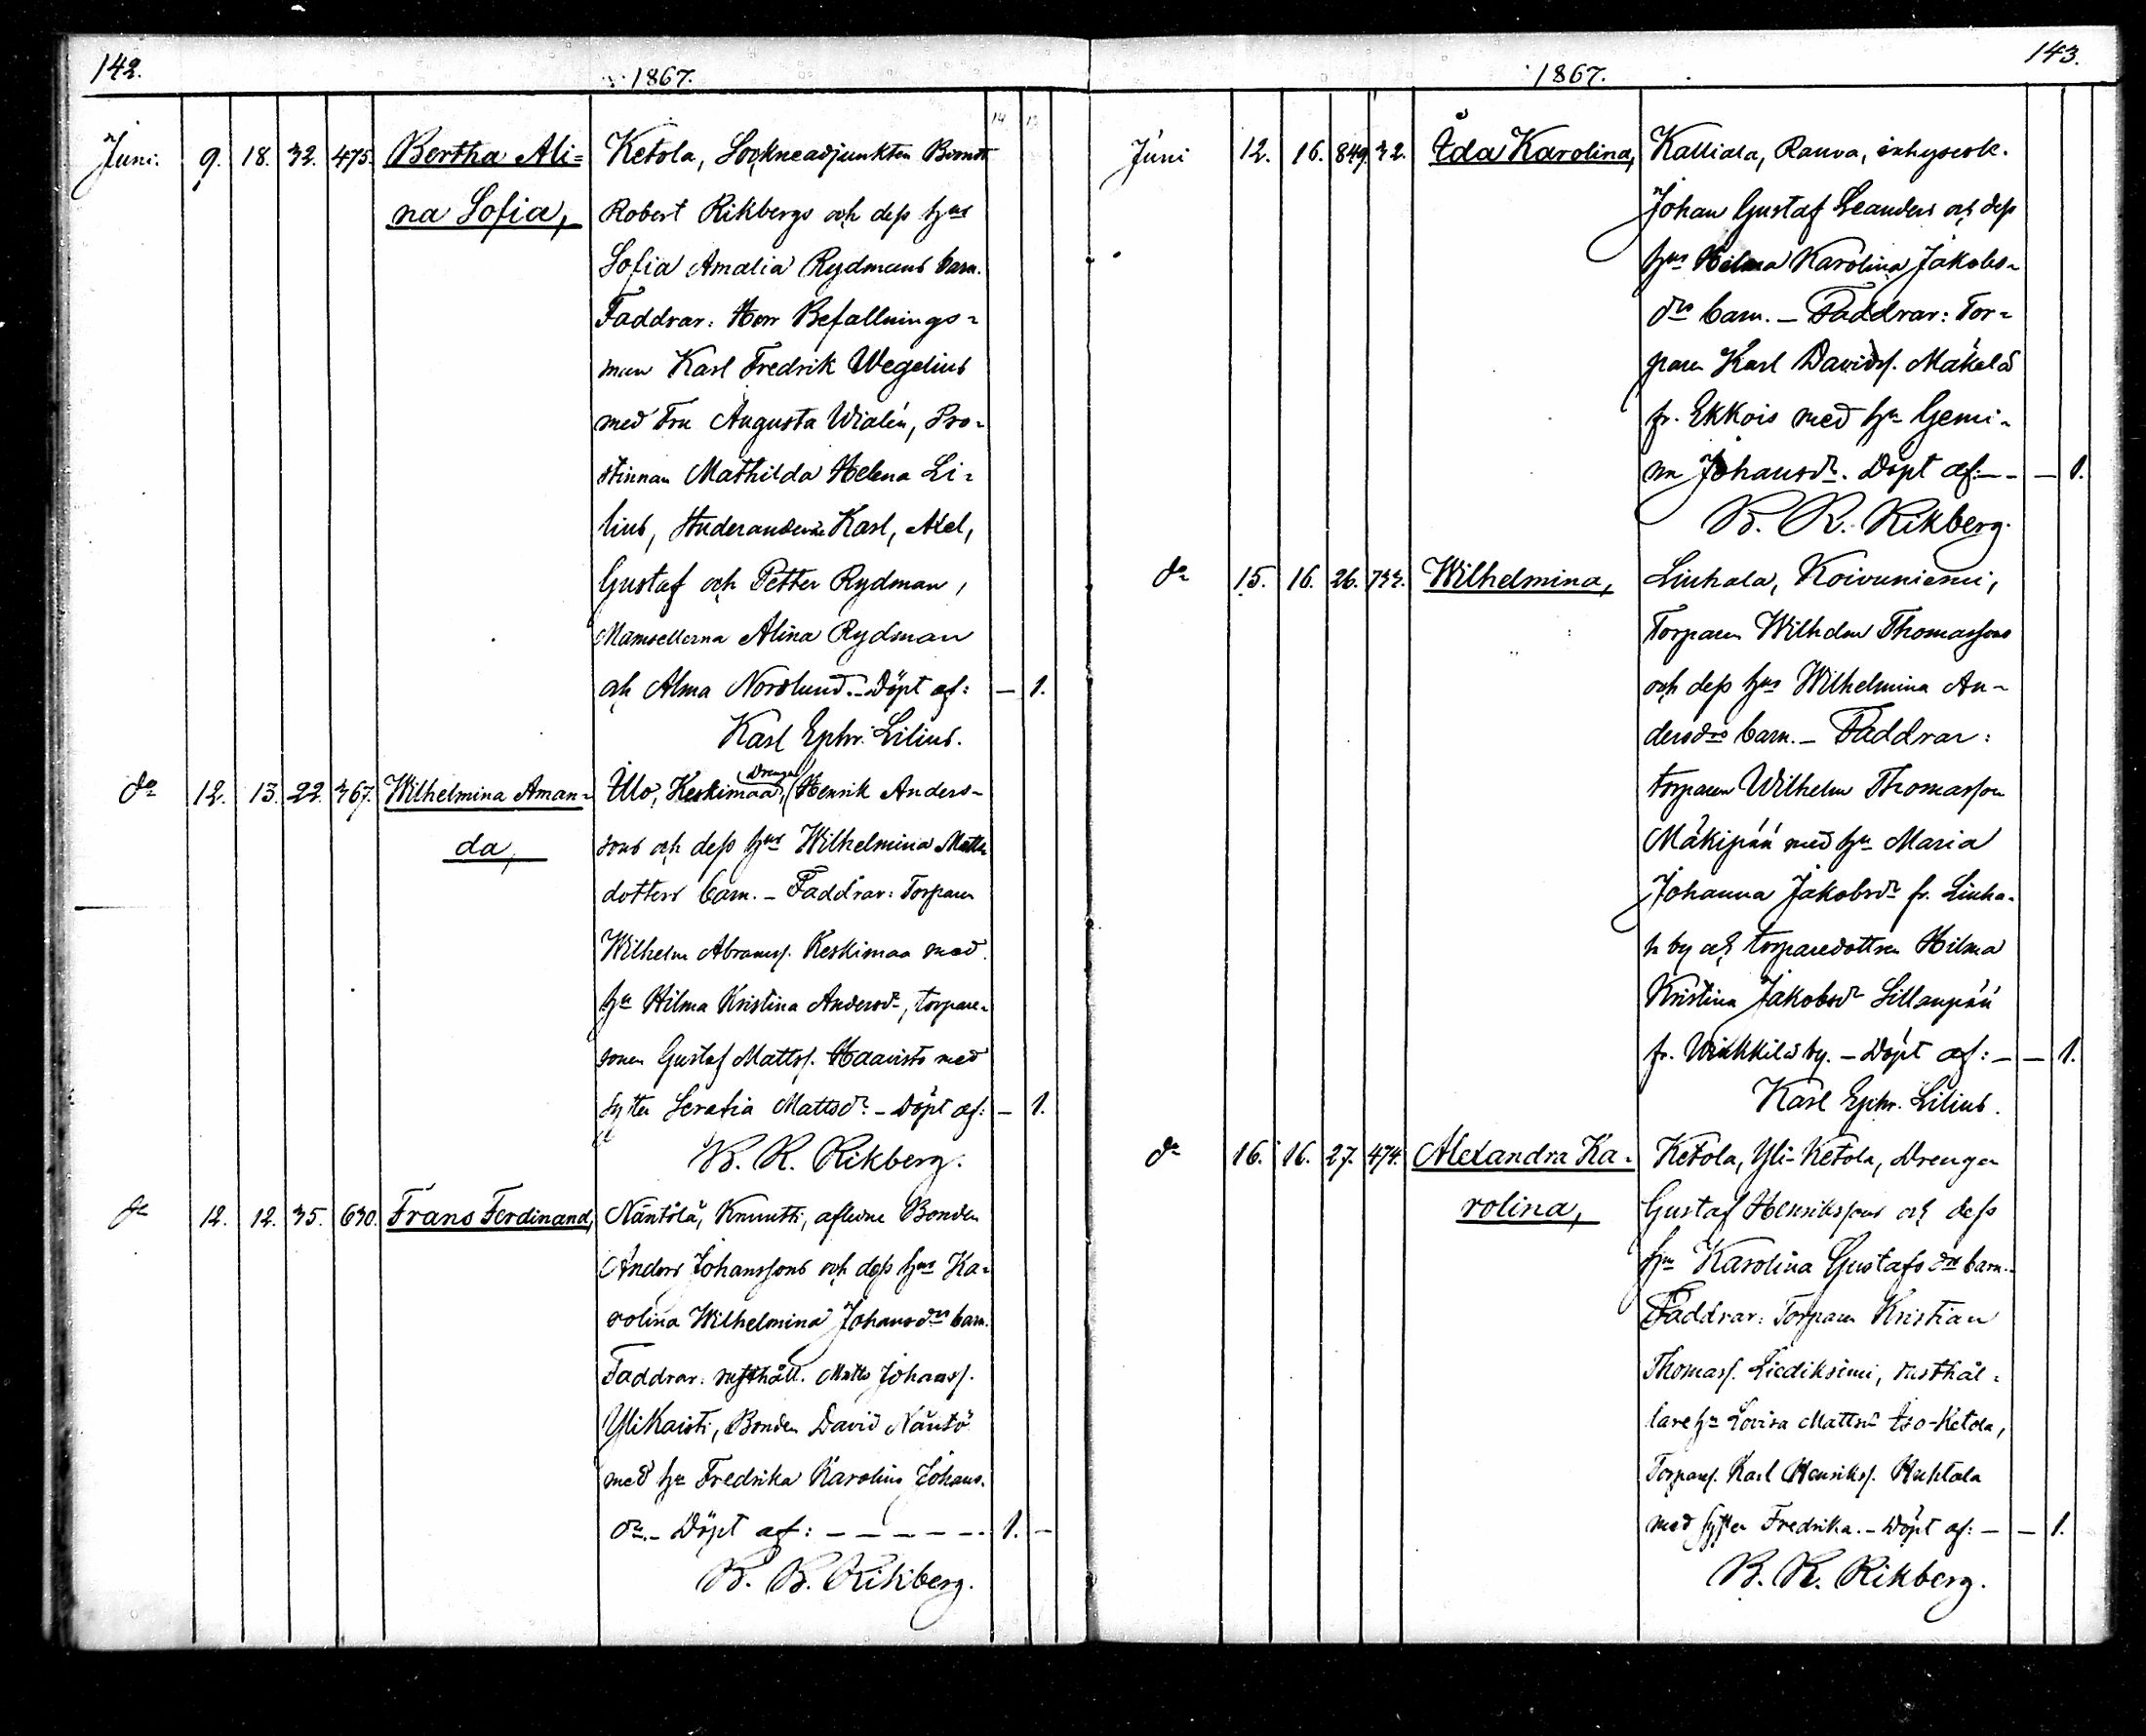 142.
1867.
14 13
Juni. 9. 18. 32. 475. Bertha Ali= Ketola, Sockneadjunkten Berndt
na Sofia, Robert Rikbergs och dess hus
Sofia Amalia Rydmans barn.
Faddrar: Herr Befallnings=
man Karl Fredrik Wegelius
med Fru Augusta Wialén, Pro=
stinnan Mathilda Helena Li=
lius, Studerandena Karl, Axel,
Gustaf och Petter Rydman,
Mamsellerna Alina Rydman
och Alma Nordlund. - Döpt af: — 1.
Karl Ephr. Lilius.
Drengen
do 12. 13. 22. 367. Wilhelmina Aman= Ullo, Keskimaa, Henrik Anders-
da, sons och dess hus Wilhelmina Matts
dotters barn. - Faddrar: Torparen
Wilhelm Abramss. Keskimaa med
hu Hilma Kristina Andersdr, torpare-
sonen Gustaf Mattss. Haavisto med
syster Serafia Mattsdr. - Döpt af: — 1.
B. R. Rikberg.
do 12. 12. 35. 630. Frans Ferdinand, Näntölä, Knuutti, aflidne Bonden
Anders Johanssons och dess hus Ka=
rolina Wilhelmina Johansdrs barn.
Faddrar: rusthåll. Matts Johanss.
Ylikaisti, Bonden David Näntö
med hu Fredrika Karolina Johans-
dr. - Döpt af: — — — — — — 1. —
B. R. Rikberg.
143.
1867.
Juni 12. 16. 849. 32. Ida Karolina, Kalliala, Rauva, inhysesk.
Johan Gustaf Leanders och dess
hus Hilma Karolina Jakobs-
drs barn. — Faddrar: Tor=
paren Karl Davidss. Mäkelä
fr. Ekkois med hu Gemi-
na Johansdr. Döpt af: — — — 1.
B. R. Rikberg.
do 15. 16. 26. 733. Wilhelmina, Liuhala, Koivuniemi,
Torparen Wilhelm Thomassons
och dess hus Wilhelmina An-
dersdrs barn. — Faddrar:
torparen Wilhelm Thomasson
Mäkipää med hu Maria
Johanna Jakobsdr fr. Liuha-
la by och torparedottren Hilma
Kristina Jakobsdr Sillanpää
fr. by. — Döpt af: — — 1.
Karl Ephr. Lilius.
do 16. 16. 27. 474. Alexandra Ka- Ketola, Yli-Ketola, Drengen
rolina, Gustaf Henrikssons och dess
hus Karolina Gustafsdrs barn.
Faddrar: Torparen Kristian
Thomass. rusthål=
lare hu Lovisa Mattsdr Iso-Ketola,
Torpares. Karl Henrikss. Huhtala
med syster Fredrika. — Döpt af: — — 1.
B. R. Rikberg.